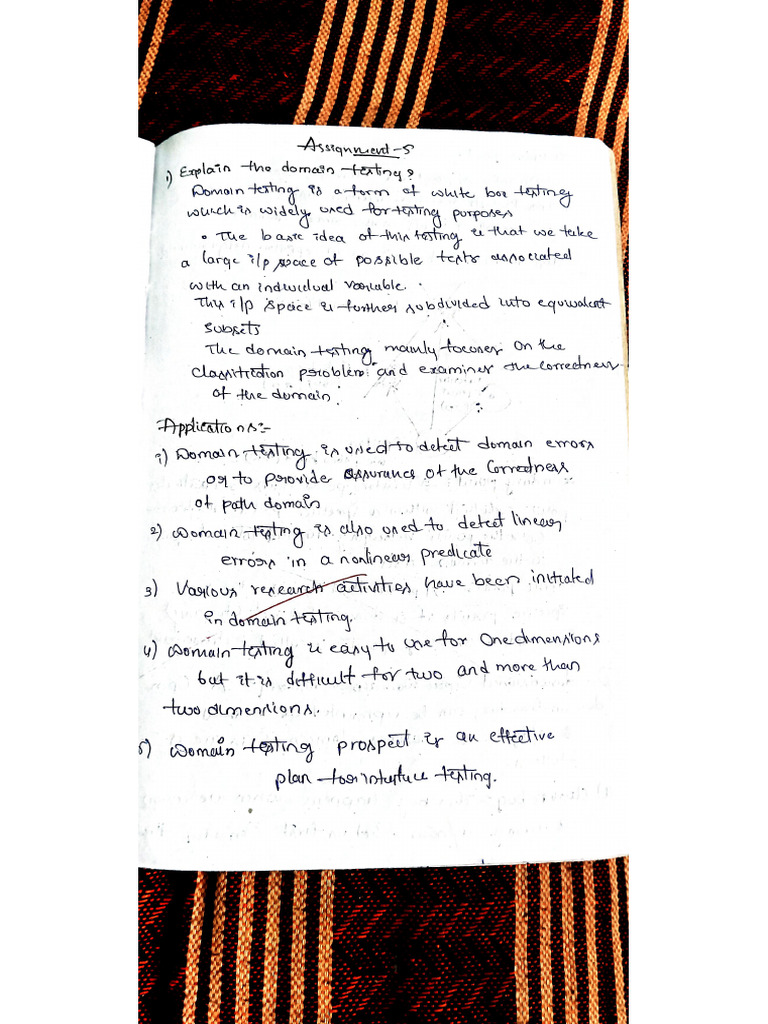 Assignment-5
1) Explain the domain testing?
Domain testing is a form of white box testing
which is widely used for testing purposes
• The basic idea of this testing is that we take
a large i/p space of possible tests associated
with an individual variable.
This i/p space is further subdivided into equivalent
subsets
The domain testing mainly focuses on the
classification problem and examines the correctness
of the domain.
Applications:-
1) Domain testing is used to detect domain errors
or to provide assurance of the correctness
of path domain
2) Domain testing is also used to detect linear
errors in a nonlinear predicate
3) Various research activities have been initiated
in domain testing.
4) Domain testing is easy to use for One dimensions
but it is difficult for two and more than
two dimensions.
5) Domain testing prospect is an effective
plan for interface testing.